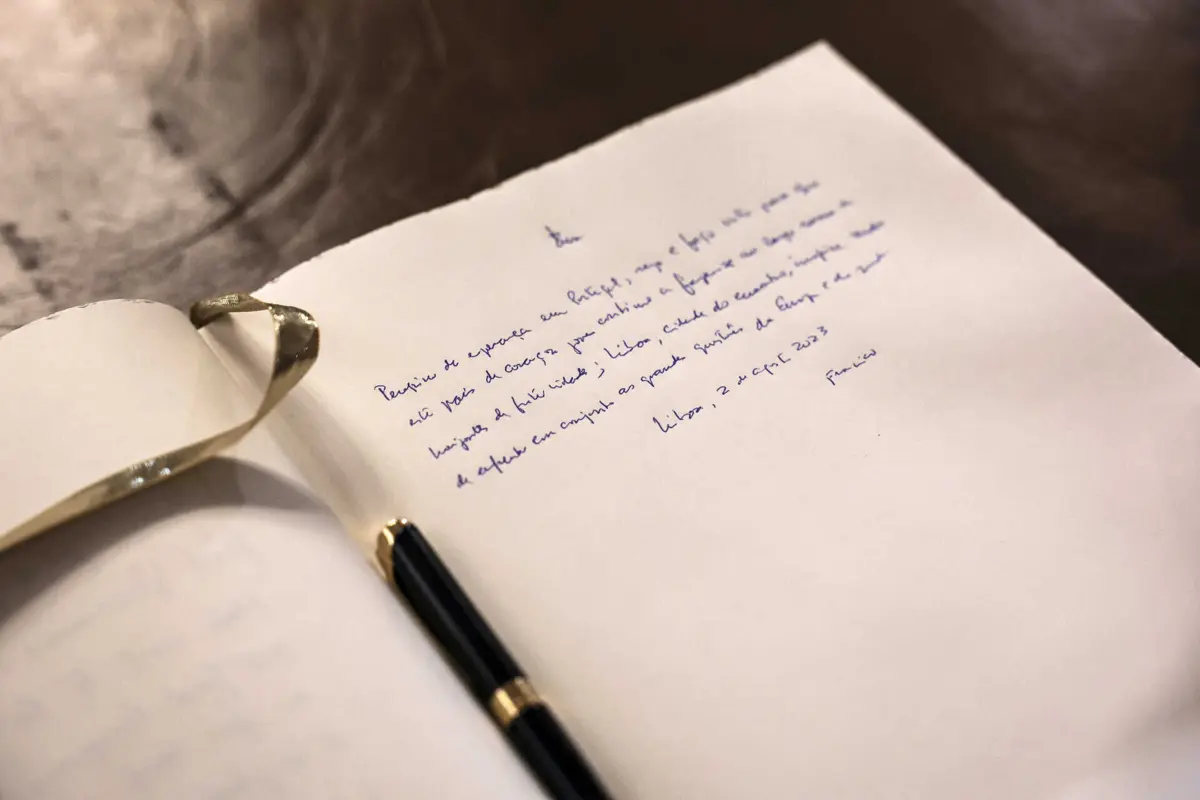 Peregrino de esperança em Portugal, rezo e faço votos para que
este país de coração jovem continue a fazer-se ao largo rumo a
horizontes de fraternidade; Lisboa, cidade do encontro, inspire modos
de enfrentar em conjunto as grandes questões da Europa e do mundo
Lisboa, 2 de agosto 2023
Francisco